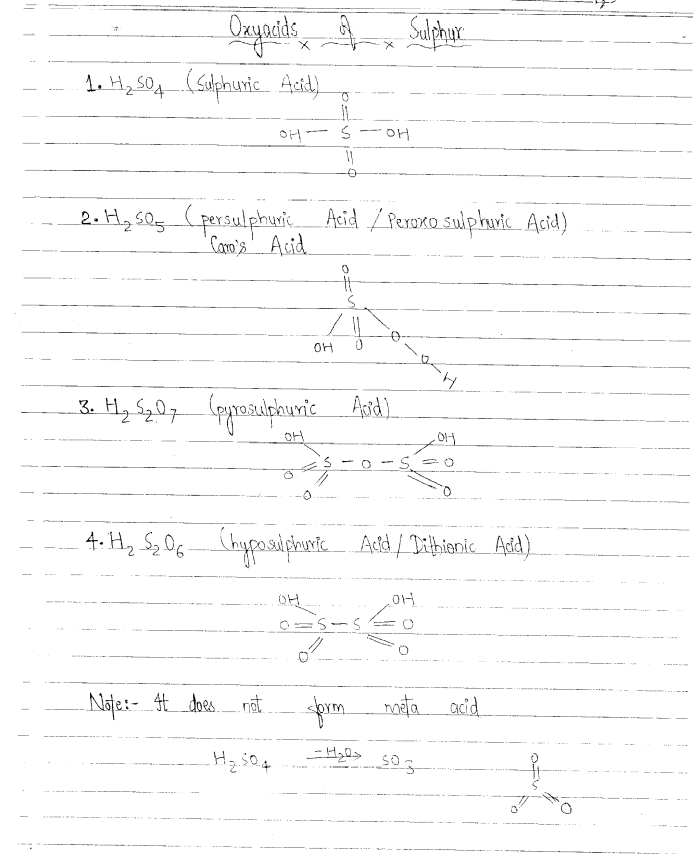 Oxyacids of Sulphur
1. H2SO4 (Sulphuric Acid)
O
OH — S — OH
O
2. H2SO5 (persulphuric Acid / Peroxo sulphuric Acid)
Caro's Acid
O
S
OH O O
O
H
3. H2S2O7 (pyrosulphuric Acid)
OH OH
O = S — O — S = O
O O
4. H2S2O6 (hyposulphuric Acid / Dithionic Acid)
OH OH
O = S — S = O
O O
Note:- It does not form meta acid
H2SO4 —H2O→ SO3
O
S
O O